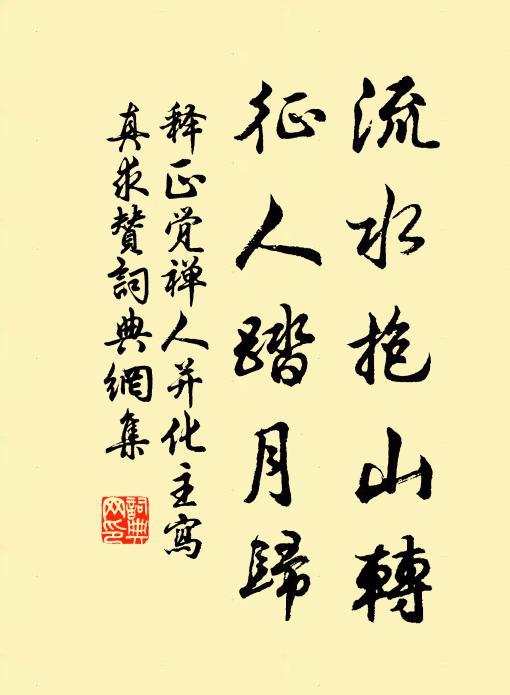 流水抱山轉
征人踏月歸
释正觉禅人并化主寫
真求贊詞典網集
詞典
网印